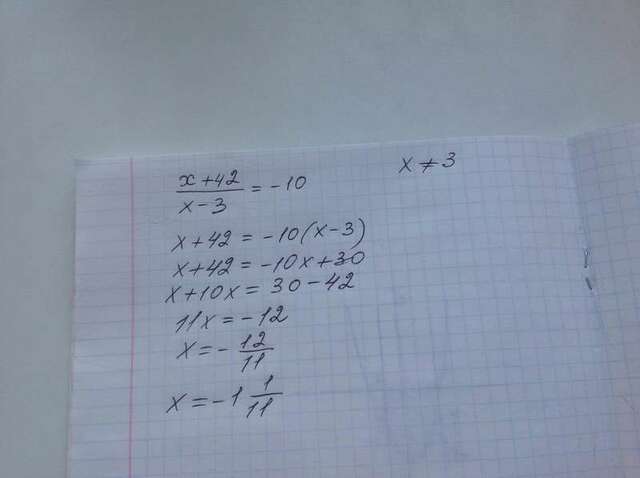 x ≠ 3
x+42/x-3 = -10
x+42 = -10(x-3)
x+42 = -10x+30
x+10x = 30-42
11x = -12
x = -12/11
x = -1 1/11